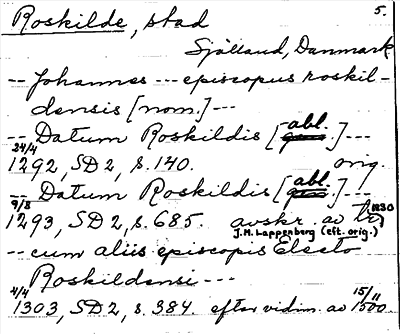 Roskilde, stad 5.
Sjålland, Danmark
-- Johannes --- episcopus roskil-
densis [nom.] ---
-- Datum Roskildis [abl.] ---
24/4
1292, SD 2, s. 140. orig.
-- Datum Roskildis [abl.] ---
9/8
1293, SD 2, s. 685. avskr. av 1830
J.M. Lappenberg (eft. orig.)
-- cum aliis episcopis Electo
Roskildensi ---
4/4 15/11
1303, SD 2, s. 384 efter vidim. av 1500